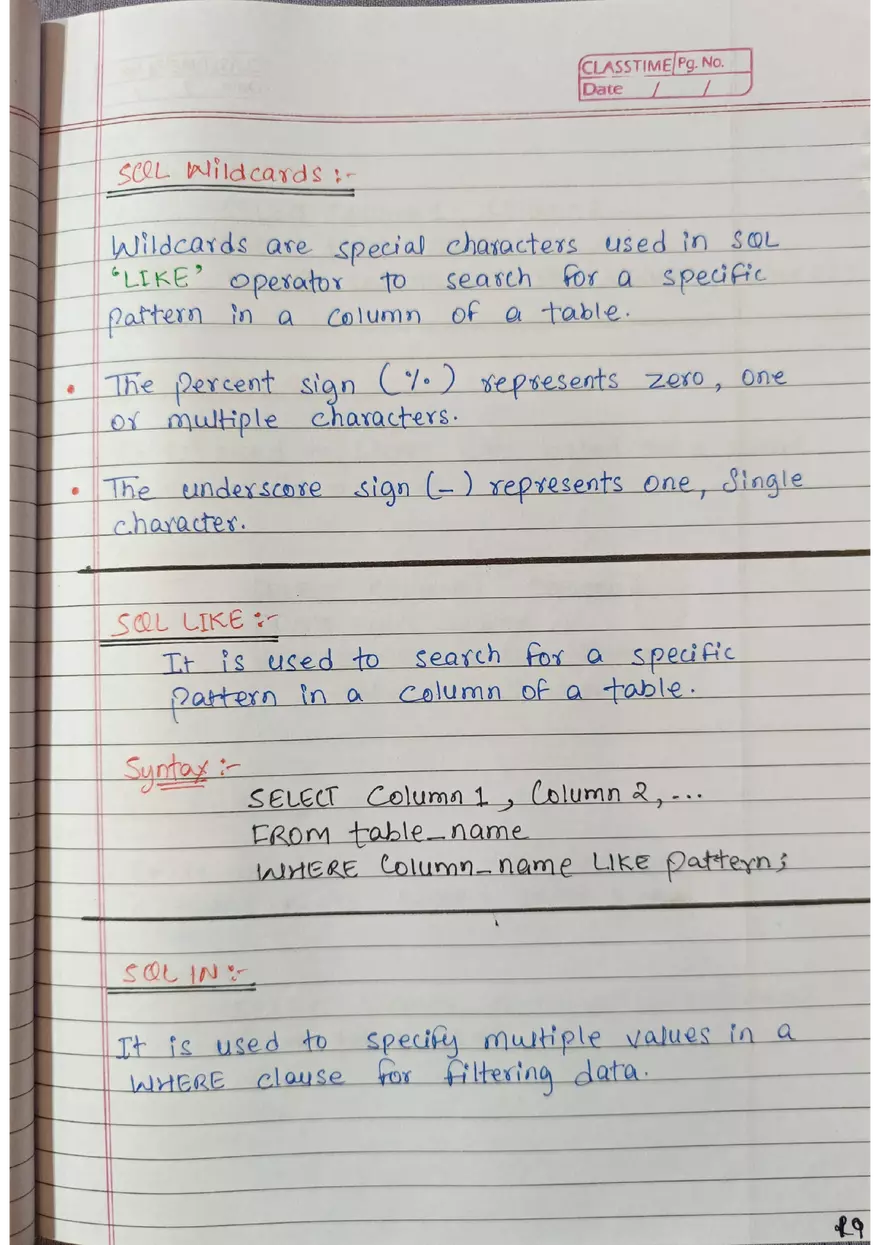 CLASSTIME Pg. No.
Date / /
SQL Wildcards :-
Wildcards are special characters used in SQL
'LIKE' operator to search for a specific
pattern in a column of a table.
• The percent sign (%) represents zero, one
or multiple characters.
• The underscore sign (_) represents one, Single
character.
SQL LIKE :-
It is used to search for a specific
pattern in a column of a table.
Syntax :-
SELECT Column 1, Column 2, ...
FROM table_name
WHERE Column_name LIKE pattern;
SQL IN :-
It is used to specify multiple values in a
WHERE clause for filtering data.